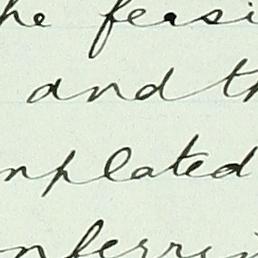 he feasi
and th
mplated
nferrin